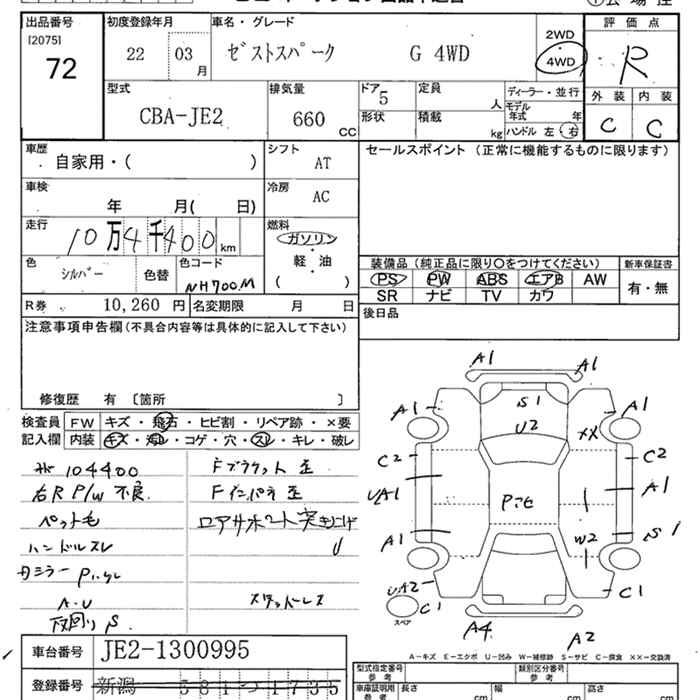 出品番号 初度登録年月 車名・グレード 評価点
[2075]
72
22 03 月 ゼストスパーク G 4WD
2WD
4WD
R
型式 CBA-JE2
排気量 660 CC
ドア 5 定員 人
形状 積載 kg
ディーラー・並行
モデル年式 年
ハンドル 左・右
外装 内装
C C
車歴 自家用・( )
シフト AT
セールスポイント(正常に機能するものに限ります)
車検 年 月( 日)
冷房 AC
走行 10万4千400 km
燃料 ガソリン
軽・油
( )
色 シルバー 色替 色コード NH700M
装備品(純正品に限り○をつけてください) 新車保証書
PS PW ABS エアB AW 有・無
SR ナビ TV カワ
R券 10,260 円 名変期限 月 日
後日品
注意事項申告欄(不具合内容等は具体的に記入して下さい)
修復歴 有 〔箇所 〕
検査員記入欄
FW キズ・飛石・ヒビ割・リペア跡・×要
内装 キズ・汚れ・コゲ・穴・スレ・キレ・破レ
104400
右R P/W 不良
ペット毛
ハンドルスレ
A-U
下回りS
Fブラケット歪
Fインパネ歪
ロアサポート突き上げ
U
スタッドレス
A1 A1
A1 S1 A1
U2 XX
C2 C2
UA1 A1
Pコセ
A1 W2 S1
UA2 C1 C1
スペア
A4 A2
A-キズ E-エクボ U-凹み W-補修跡 S-サビ C-腐食 ××-交換済
車台番号 JE2-1300995
登録番号 新潟 581 1735
型式指定番号 参考 類別区分番号 参考
車庫証明用 参考 長さ cm 幅 cm 高さ cm